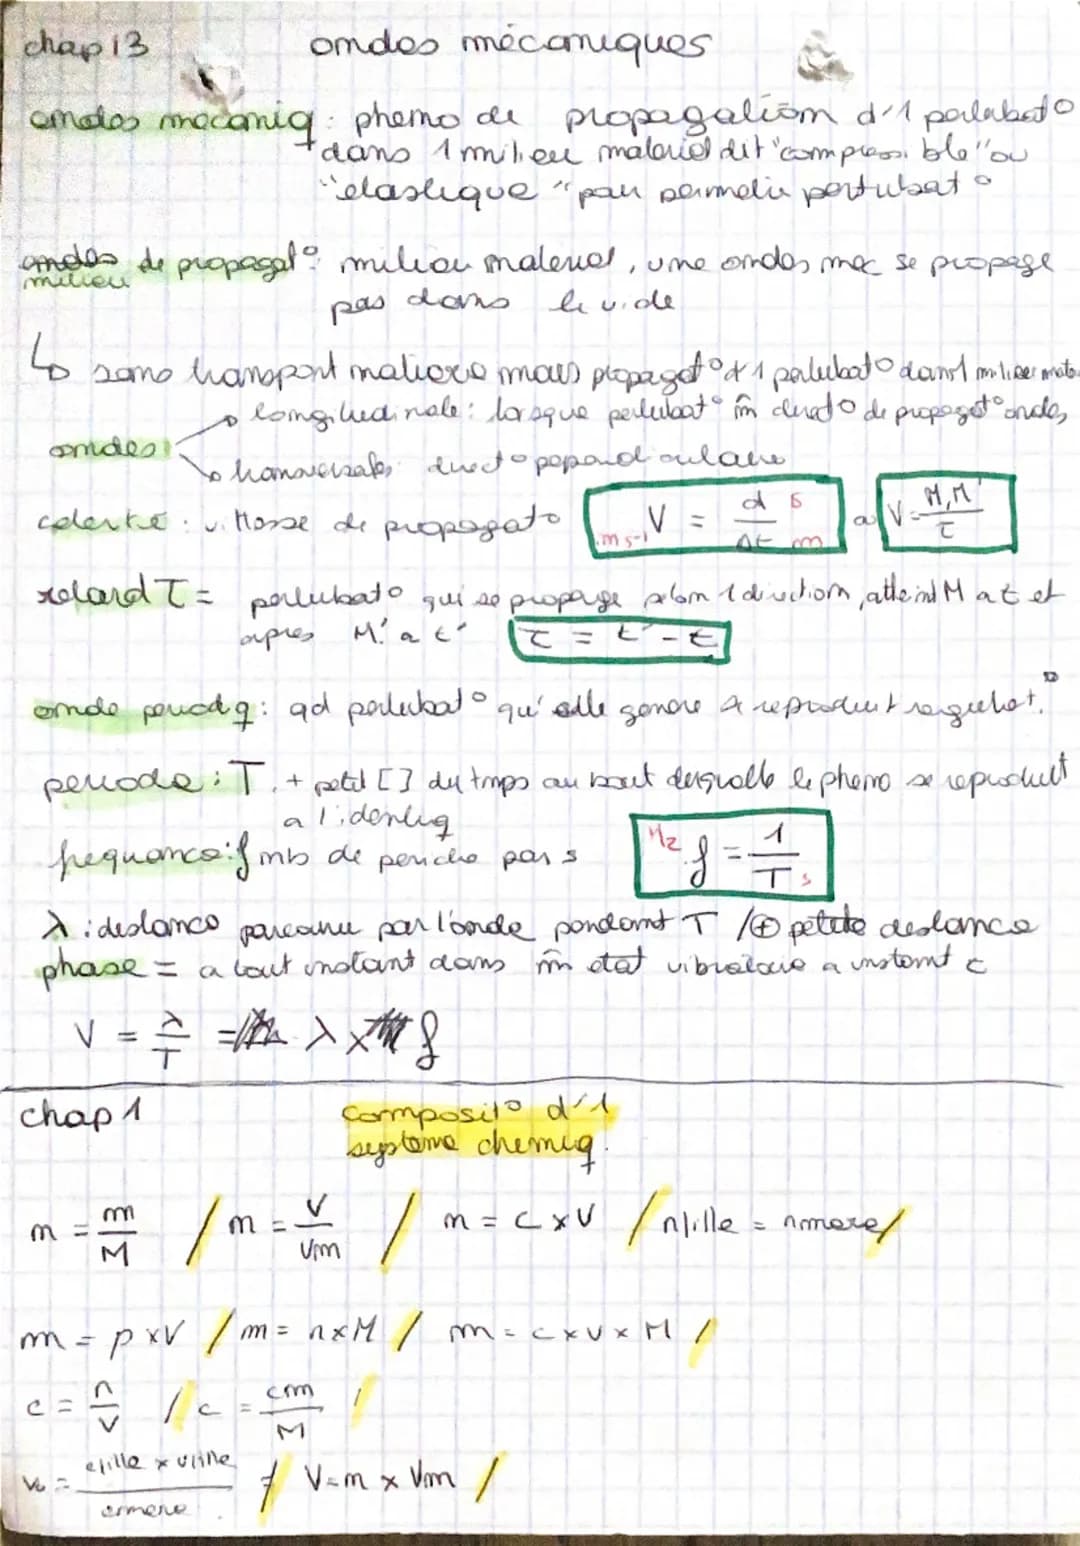 chap 13 ondes mécaniques
ondes mecaniq : pheno de propagation d'1 pertubat°
dans 1 milieu materiel dit "compressible" ou
"elastique" pour permetre pertubat°
ondes de propagat° : milieu materiel, une ondes mec se propage
milieu
pas dans le vide
↳ sans transport matiere mais propagat° d'1 pertubat° dans 1 milieu mate
longitudinale : lorsque pertubat° m̂ direct° de propagat° ondes
ondes :
transversales : direct° perpendiculaire
celerité : vitesse de propagat° V = d / Δt s m m s-1 V = M, M' / τ
retard τ = pertubat° qui se propage selon 1 direction, atteind M a t et
apres M' a t' τ = t' - t
onde periodq : qd pertubat° qu'elle genere se reproduit regulièt.
periode : T. + petit [ ] du tmps au bout duquelle le pheno se reproduit
a l'identiq
frequence : f nb de periode par s Hz f = 1 / T s
λ : distance parcourue par l'onde pendant T / ⊕ petite distance
phase = a tout instant dans m̂ etat vibratoire a instant t
V = λ / T = λ × f
chap 1 composit° d'1
systeme chemiq.
n = m / M / n = V / Vm / n = c × V / nfille = nmere /
m = ρ × V / m = n × M / m = c × v × M /
c = n / V / c = cm / M /
v = cfille × vfille / cmere / V = n × Vm /